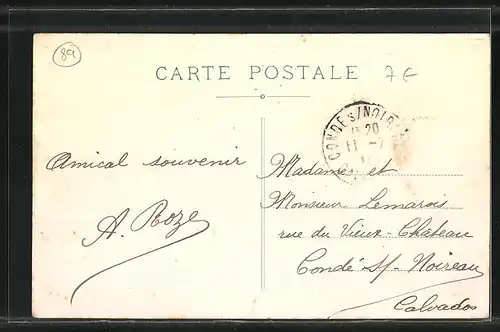 89
CARTE POSTALE
7€
CONDE S/NOIR
20
11 - 7
Amical souvenir
A. Roze
Madame et
Monsieur Lemarois
rue du Vieux-Château
Condé s/ Noireau
Calvados